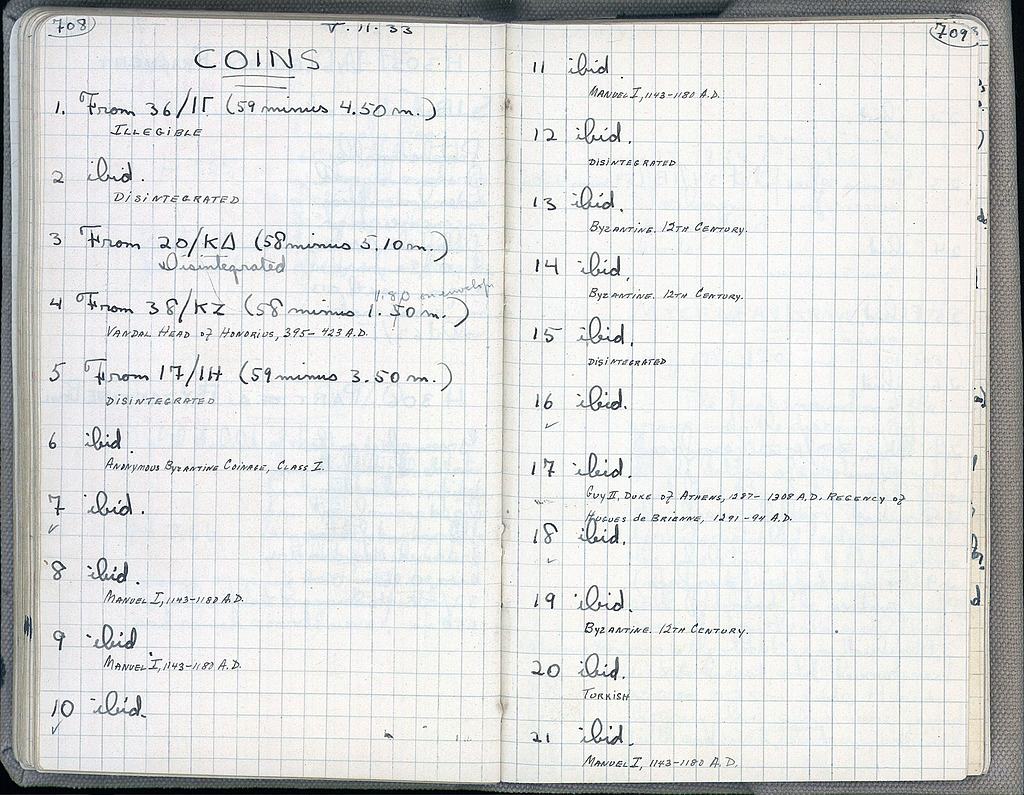 708
V.11.33
COINS
1. From 36/ΙΓ (59 minus 4.50 m.)
ILLEGIBLE
2 ibid.
DISINTEGRATED
3 From 20/ΚΔ (58 minus 5.10 m.)
Disintegrated
1.80 on envelope
4 From 38/ΚΖ (58 minus 1.50 m.)
VANDAL HEAD of HONORIUS, 395-423 A.D.
5 From 17/ΙΗ (59 minus 3.50 m.)
DISINTEGRATED
6 ibid.
ANONYMOUS BYZANTINE COINAGE, CLASS I.
7 ibid.
✓
8 ibid.
MANUEL I, 1143-1180 A.D.
9 ibid
MANUEL I, 1143-1180 A.D.
10 ibid.
✓
709
11 ibid.
MANUEL I, 1143-1180 A.D.
12 ibid.
DISINTEGRATED
13 ibid.
BYZANTINE. 12TH CENTURY.
14 ibid.
BYZANTINE. 12TH CENTURY.
15 ibid.
DISINTEGRATED
16 ibid.
✓
17 ibid.
GUY II, DUKE of ATHENS, 1287-1308 A.D. REGENCY of
HUGUES de BRIENNE, 1291-94 A.D.
18 ibid.
✓
19 ibid.
BYZANTINE. 12TH CENTURY.
20 ibid.
TURKISH
21 ibid.
MANUEL I, 1143-1180 A.D.